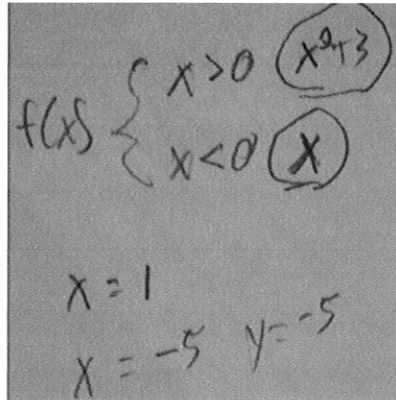 f(x) { x>0 x²+3
x<0 x
x=1
x=-5 y=-5